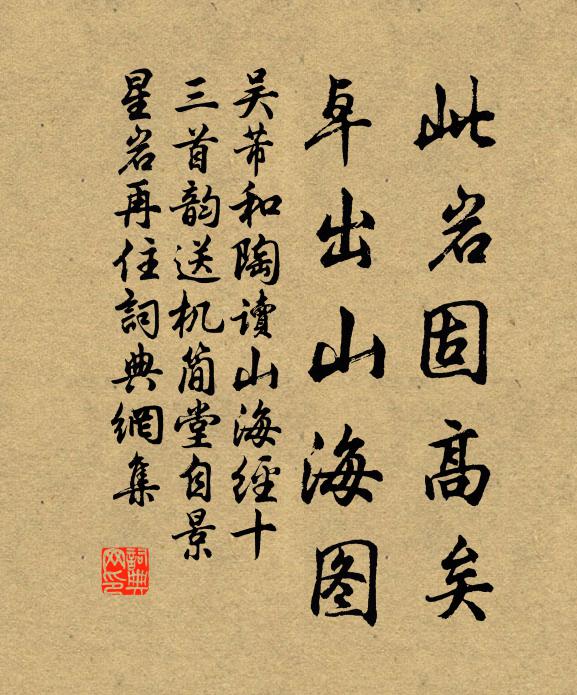 此岩固高矣
卓出山海图
吴芾和陶读山海經十
三首韵送机简堂自景
星岩再住詞典網集
詞典网印